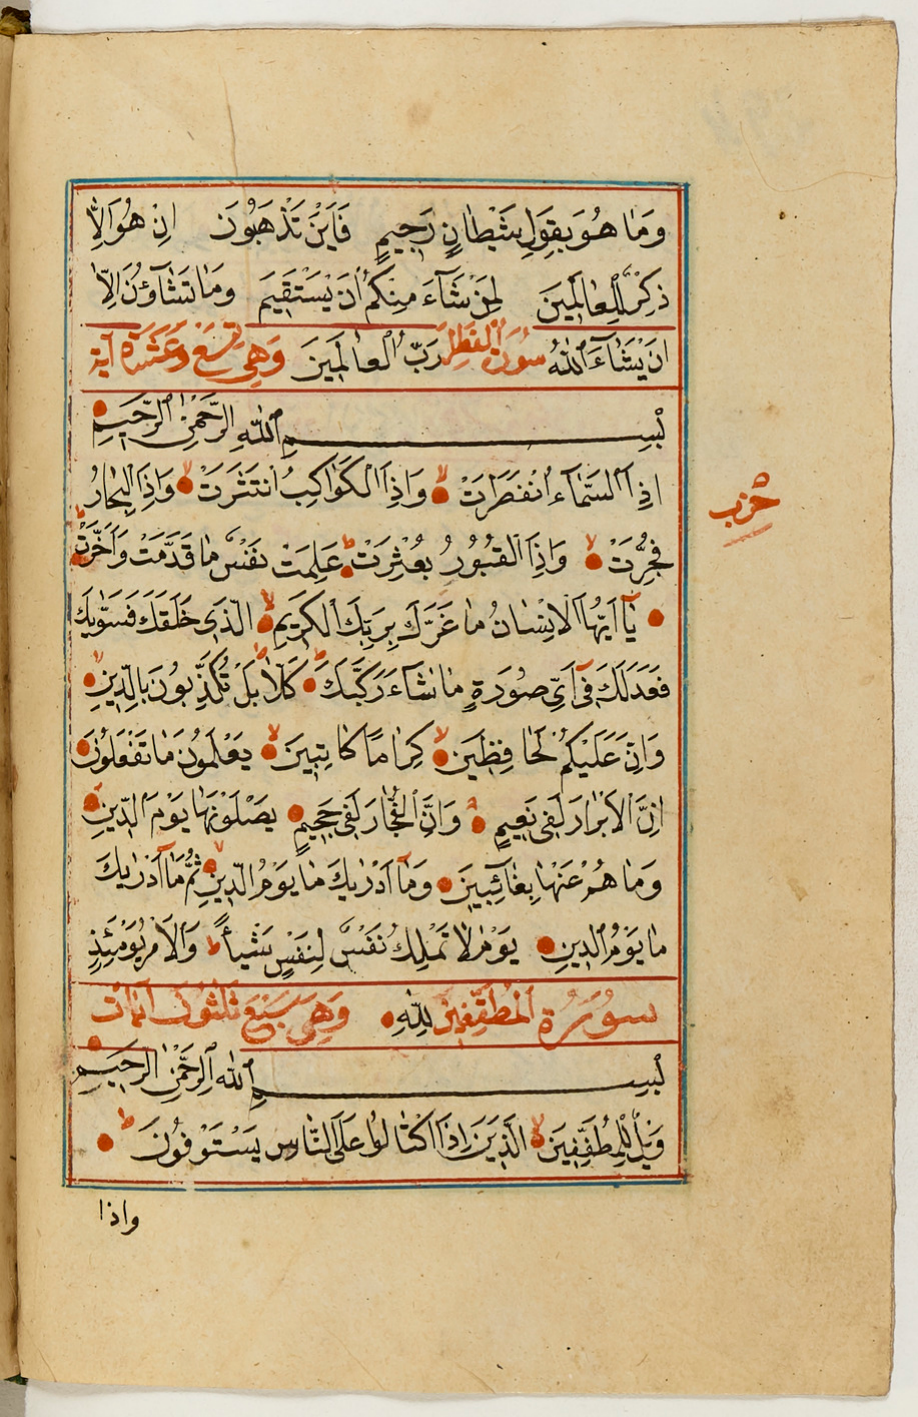 وَمَا هُوَ بِقَوْلِ شَيْطَانٍ رَجِيمٍ فَاَيْنَ تَذْهَبُونَ اِنْ هُوَ اِلَّا
ذِكْرٌ لِلْعَالَمِينَ لِمَنْ شَآءَ مِنْكُمْ اَنْ يَسْتَقِيمَ وَمَا تَشَآؤُنَ اِلَّا
اَنْ يَشَآءَ اللّٰهُ سُورَةُ الفطر رَبُّ الْعَالَمِينَ وَهِيَ تِسْعَ وَعَشَرَةَ آية
بِسْمِ اللّٰهِ الرَّحْمٰنِ الرَّحِيمِ
اِذَا السَّمَآءُ انْفَطَرَتْ لا وَاِذَا الْكَوَاكِبُ انْتَثَرَتْ لا وَاِذَا الْبِحَارُ
حزب
فُجِّرَتْ لا وَاِذَا الْقُبُورُ بُعْثِرَتْ ط عَلِمَتْ نَفْسٌ مَا قَدَّمَتْ وَاَخَّرَتْ ط
يَآ اَيُّهَا الْاِنْسَانُ مَا غَرَّكَ بِرَبِّكَ الْكَرِيمِ لا الَّذِي خَلَقَكَ فَسَوّٰيكَ
فَعَدَلَكَ فِي اَيِّ صُورَةٍ مَا شَآءَ رَكَّبَكَ ط كَلَّا بَلْ تُكَذِّبُونَ بِالدِّينِ لا
وَاِنَّ عَلَيْكُمْ لَحَافِظِينَ لا كِرَامًا كَاتِبِينَ لا يَعْلَمُونَ مَا تَفْعَلُونَ
اِنَّ الْاَبْرَارَ لَفِي نَعِيمٍ وَاِنَّ الْفُجَّارَ لَفِي جَحِيمٍ يَصْلَوْنَهَا يَوْمَ الدِّينِ
وَمَا هُمْ عَنْهَا بِغَآئِبِينَ وَمَآ اَدْرٰيكَ مَا يَوْمُ الدِّينِ لا ثُمَّ مَآ اَدْرٰيكَ
مَا يَوْمُ الدِّينِ يَوْمَ لَا تَمْلِكُ نَفْسٌ لِنَفْسٍ شَيْـًٔا ط وَالْاَمْرُ يَوْمَئِذٍ
سُورَةُ الْمُطَفِّفِينَ لِلّٰهِ وَهِيَ سَبْعَ ثَلٰثُونَ آيَات
بِسْمِ اللّٰهِ الرَّحْمٰنِ الرَّحِيمِ
وَيْلٌ لِلْمُطَفِّفِينَ لا الَّذِينَ اِذَا اكْتَالُوا عَلَى النَّاسِ يَسْتَوْفُونَ ط
واذا